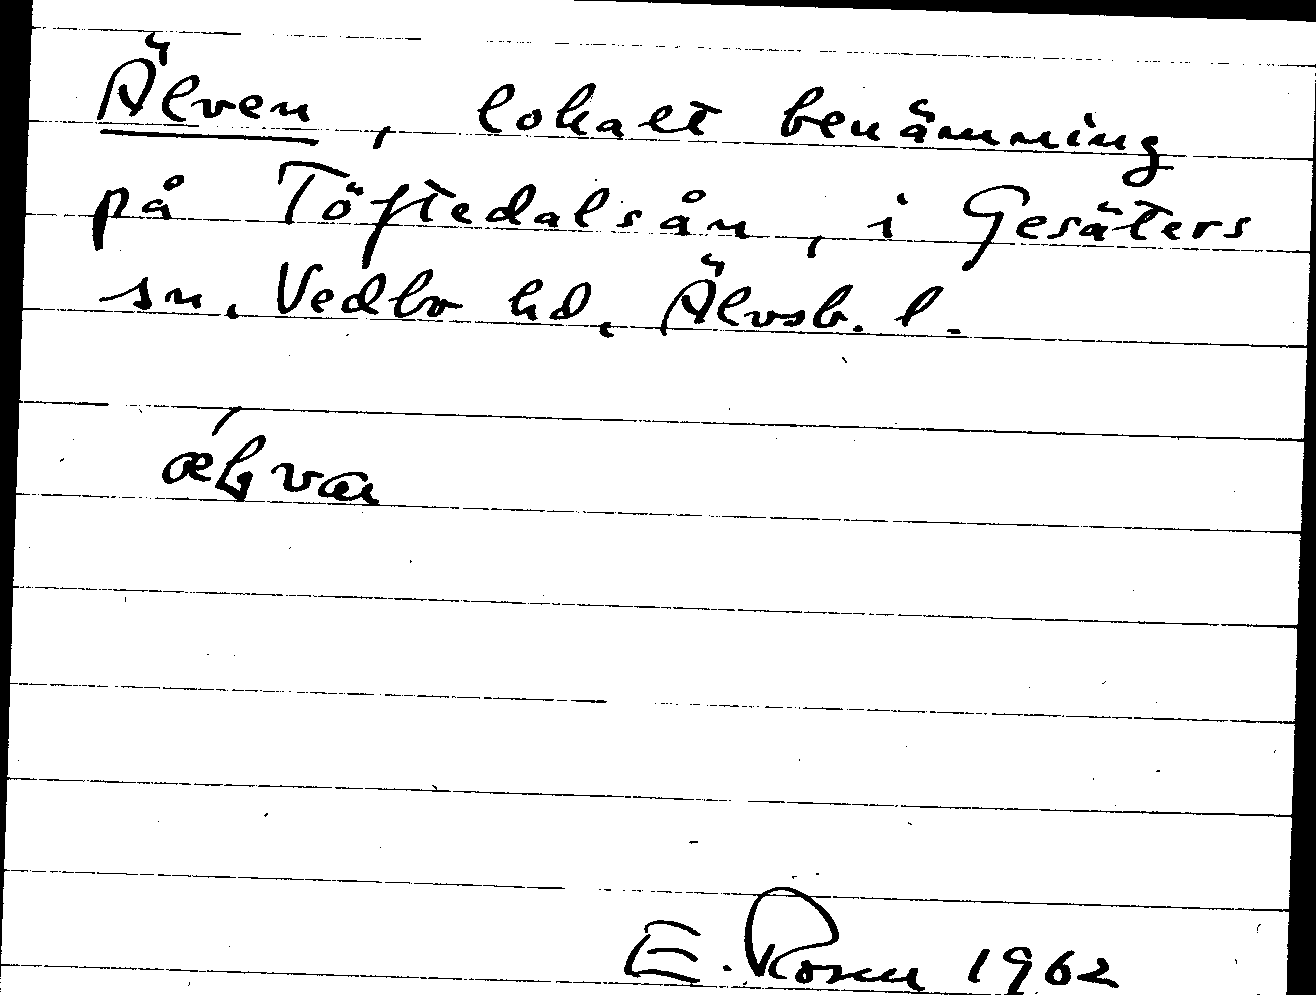 Älven, lokalt benämning
på Töftedalsån, i Gesäters
sn. Vedbo hd. Älvsb. l.
E. Rosen 1962